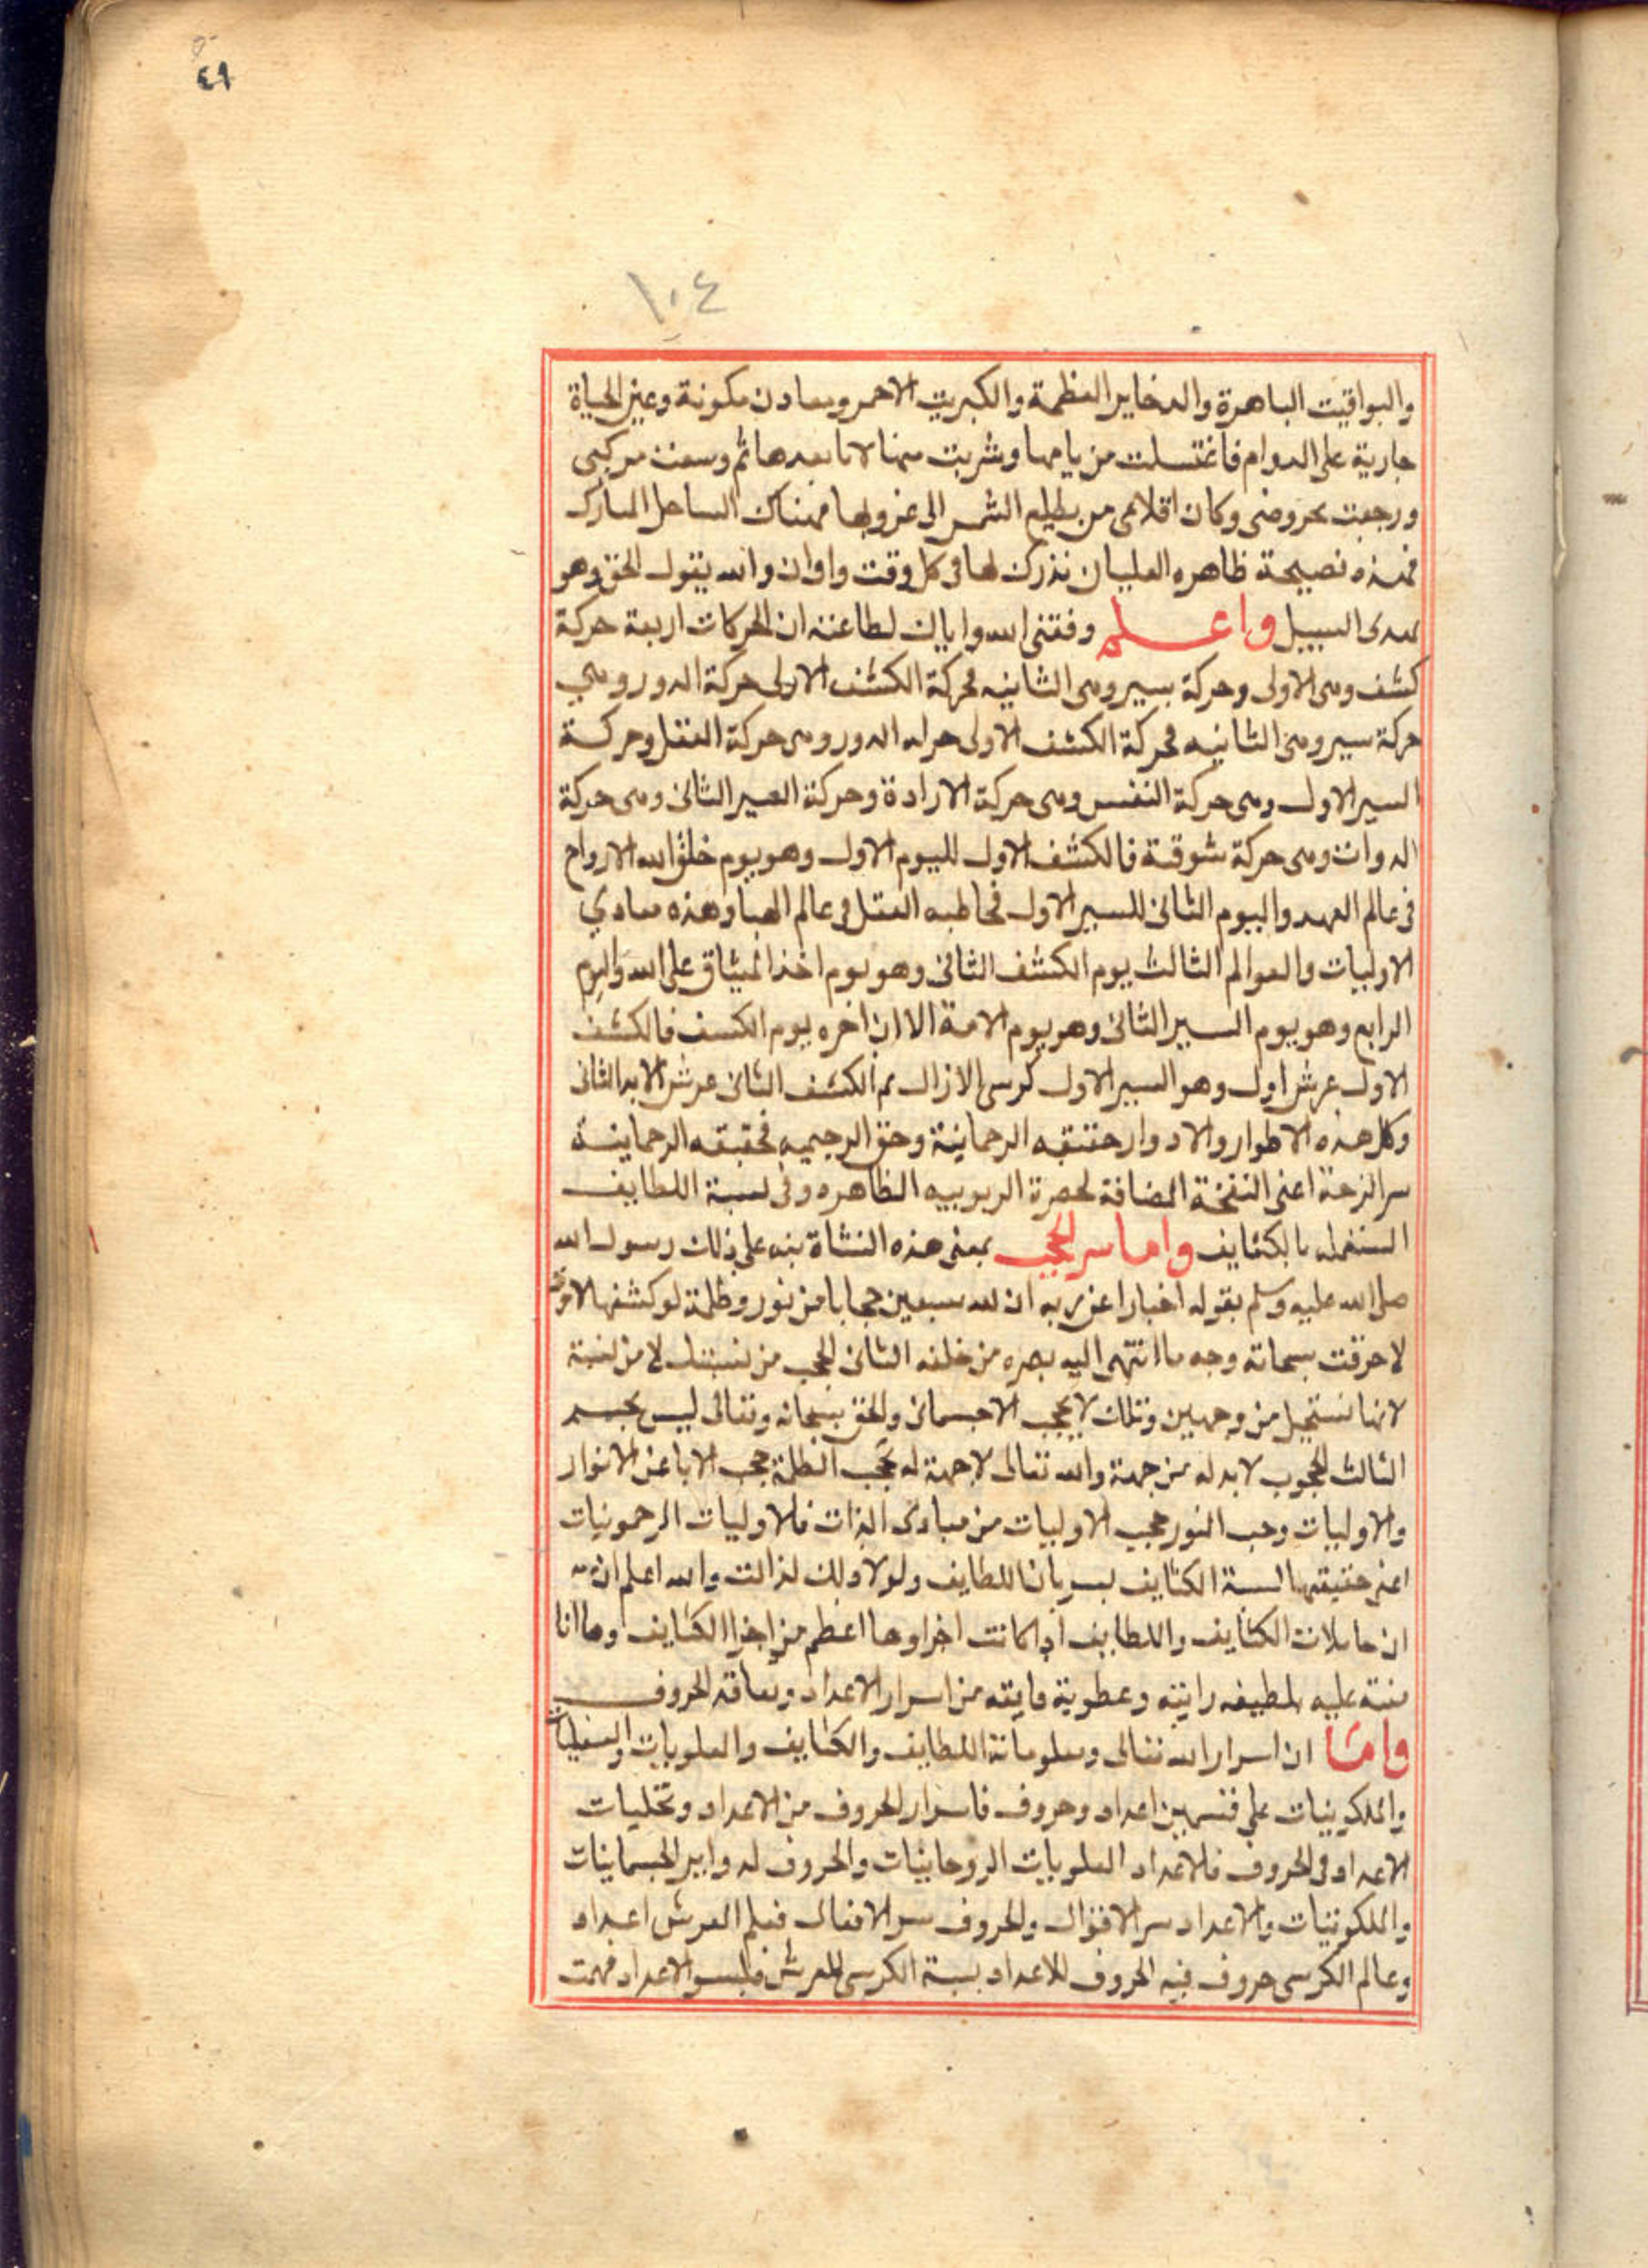 ٤٩
١٠٤
واليواقيت الباهرة والدخاير العظيمة والكبريت الاحمر ومعادن مكونة وعين الحياة
جارية على الدوام فاغتسلت من ياحها وشربت منها لانا بعدها ثم وسعت مركبى
ورجعت بحروضى وكان اقلامى من يطلع الشمس الى غروبها فهناك الساحل المبارك
فهذه نصيحة ظاهره العليان نذرك لها فى كل وقت واوان والله يقول الحق وهو
يهدى السبيل واعلم وفقنى الله واياك لطاعته ان الحركات اربعة حركة
كشف وهى الاولى وحركة سير وهى الثانيه فحركة الكشف الاولى حركة الدور وهي
حركة سير وهى الثانيه فحركة الكشف الاولى حركه الدور وهى حركة العقل وحركة
السير الاول وهى حركة النفس وهى حركة الارادة وحركة السير الثانى وهى حركة
الدوات وهى حركة شوقية فالكشف الاول لليوم الاول وهو يوم خلق الله الارواح
فى عالم العهد واليوم الثانى للسير الاول فخاطبه العقل فى عالم الهبا وهذه مبادي
الاوليات والعوالم الثالث يوم الكشف الثانى وهو يوم اخذ الميثاق على الله واليوم
الرابع وهو يوم السير الثانى وهو يوم الامة الا ان اخره يوم الكسف فالكشف
الاول عرش اول وهو السير الاول كرسى الازال ثم الكشف الثانى عرش الابد الثانى
وكل هذه الاطوار والادوار حقيقه الرحمانية وحق الرحيميه فحقيقه الرحمانية
سر الزحة اعنى النفخة المضافة لحضرة الربوبيه الظاهره وفى نسبة اللطايف
المنفعله بالكثايف واما سر الحجب بمعنى هذه النشاة نبه على ذلك رسول الله
صلى الله عليه وسلم بقوله اخبارا عن ربه ان لله سبعين حجابا من نور وظلمة لو كشفها
لاحرقت سبحاته وجه ما انتهى اليه بصره من خلقه الثانى الحجب من نسبتك لا من نسبة
لانها تستحيل من وجهين وتلك لا يحجب الاجسمانى والحق سبحانه وتعالى ليس بجسم
الثالث المحجوب لابد له من جهة والله تعالى لا جهة له فحجب الظلمة حجب الابا عن الانوار
والاوليات وحب النور حجب الاوليات من مبادى الذات فلاوليات الرحمونيات
اعنى حقيقتها لسبة الكثايف بسريان اللطايف ولولا ولك لذالت والله اعلم ان
ان حاملات الكثايف واللطايف اذا كانت اخراوها اعظم من اجزا الكثايف وها انا
منبه عليه بلطيفه رانيه وعطوية فايقه من اسرار الاعداد وتعاقد الحروف
وامّا ان اسرار الله تعالى ومعلوماتة اللطايف والكثايف والعلويات والسفليات
والملكونيات على قسمين اعداد وحروف فاسرار الحروف من الاعداد وتخليات
الاعداد فى الحروف فلاعداد العلويات الروحانيات والحروف لدواير الجسمانيات
والملكونيات والاعداد سر الاقوال والحروف سر الافعال فعلم العرش اعداد
وعالم الكرسى حروف فيه الحروف للاعداد بسبة الكرسى للعرش فلبسر الاعداد فهمت